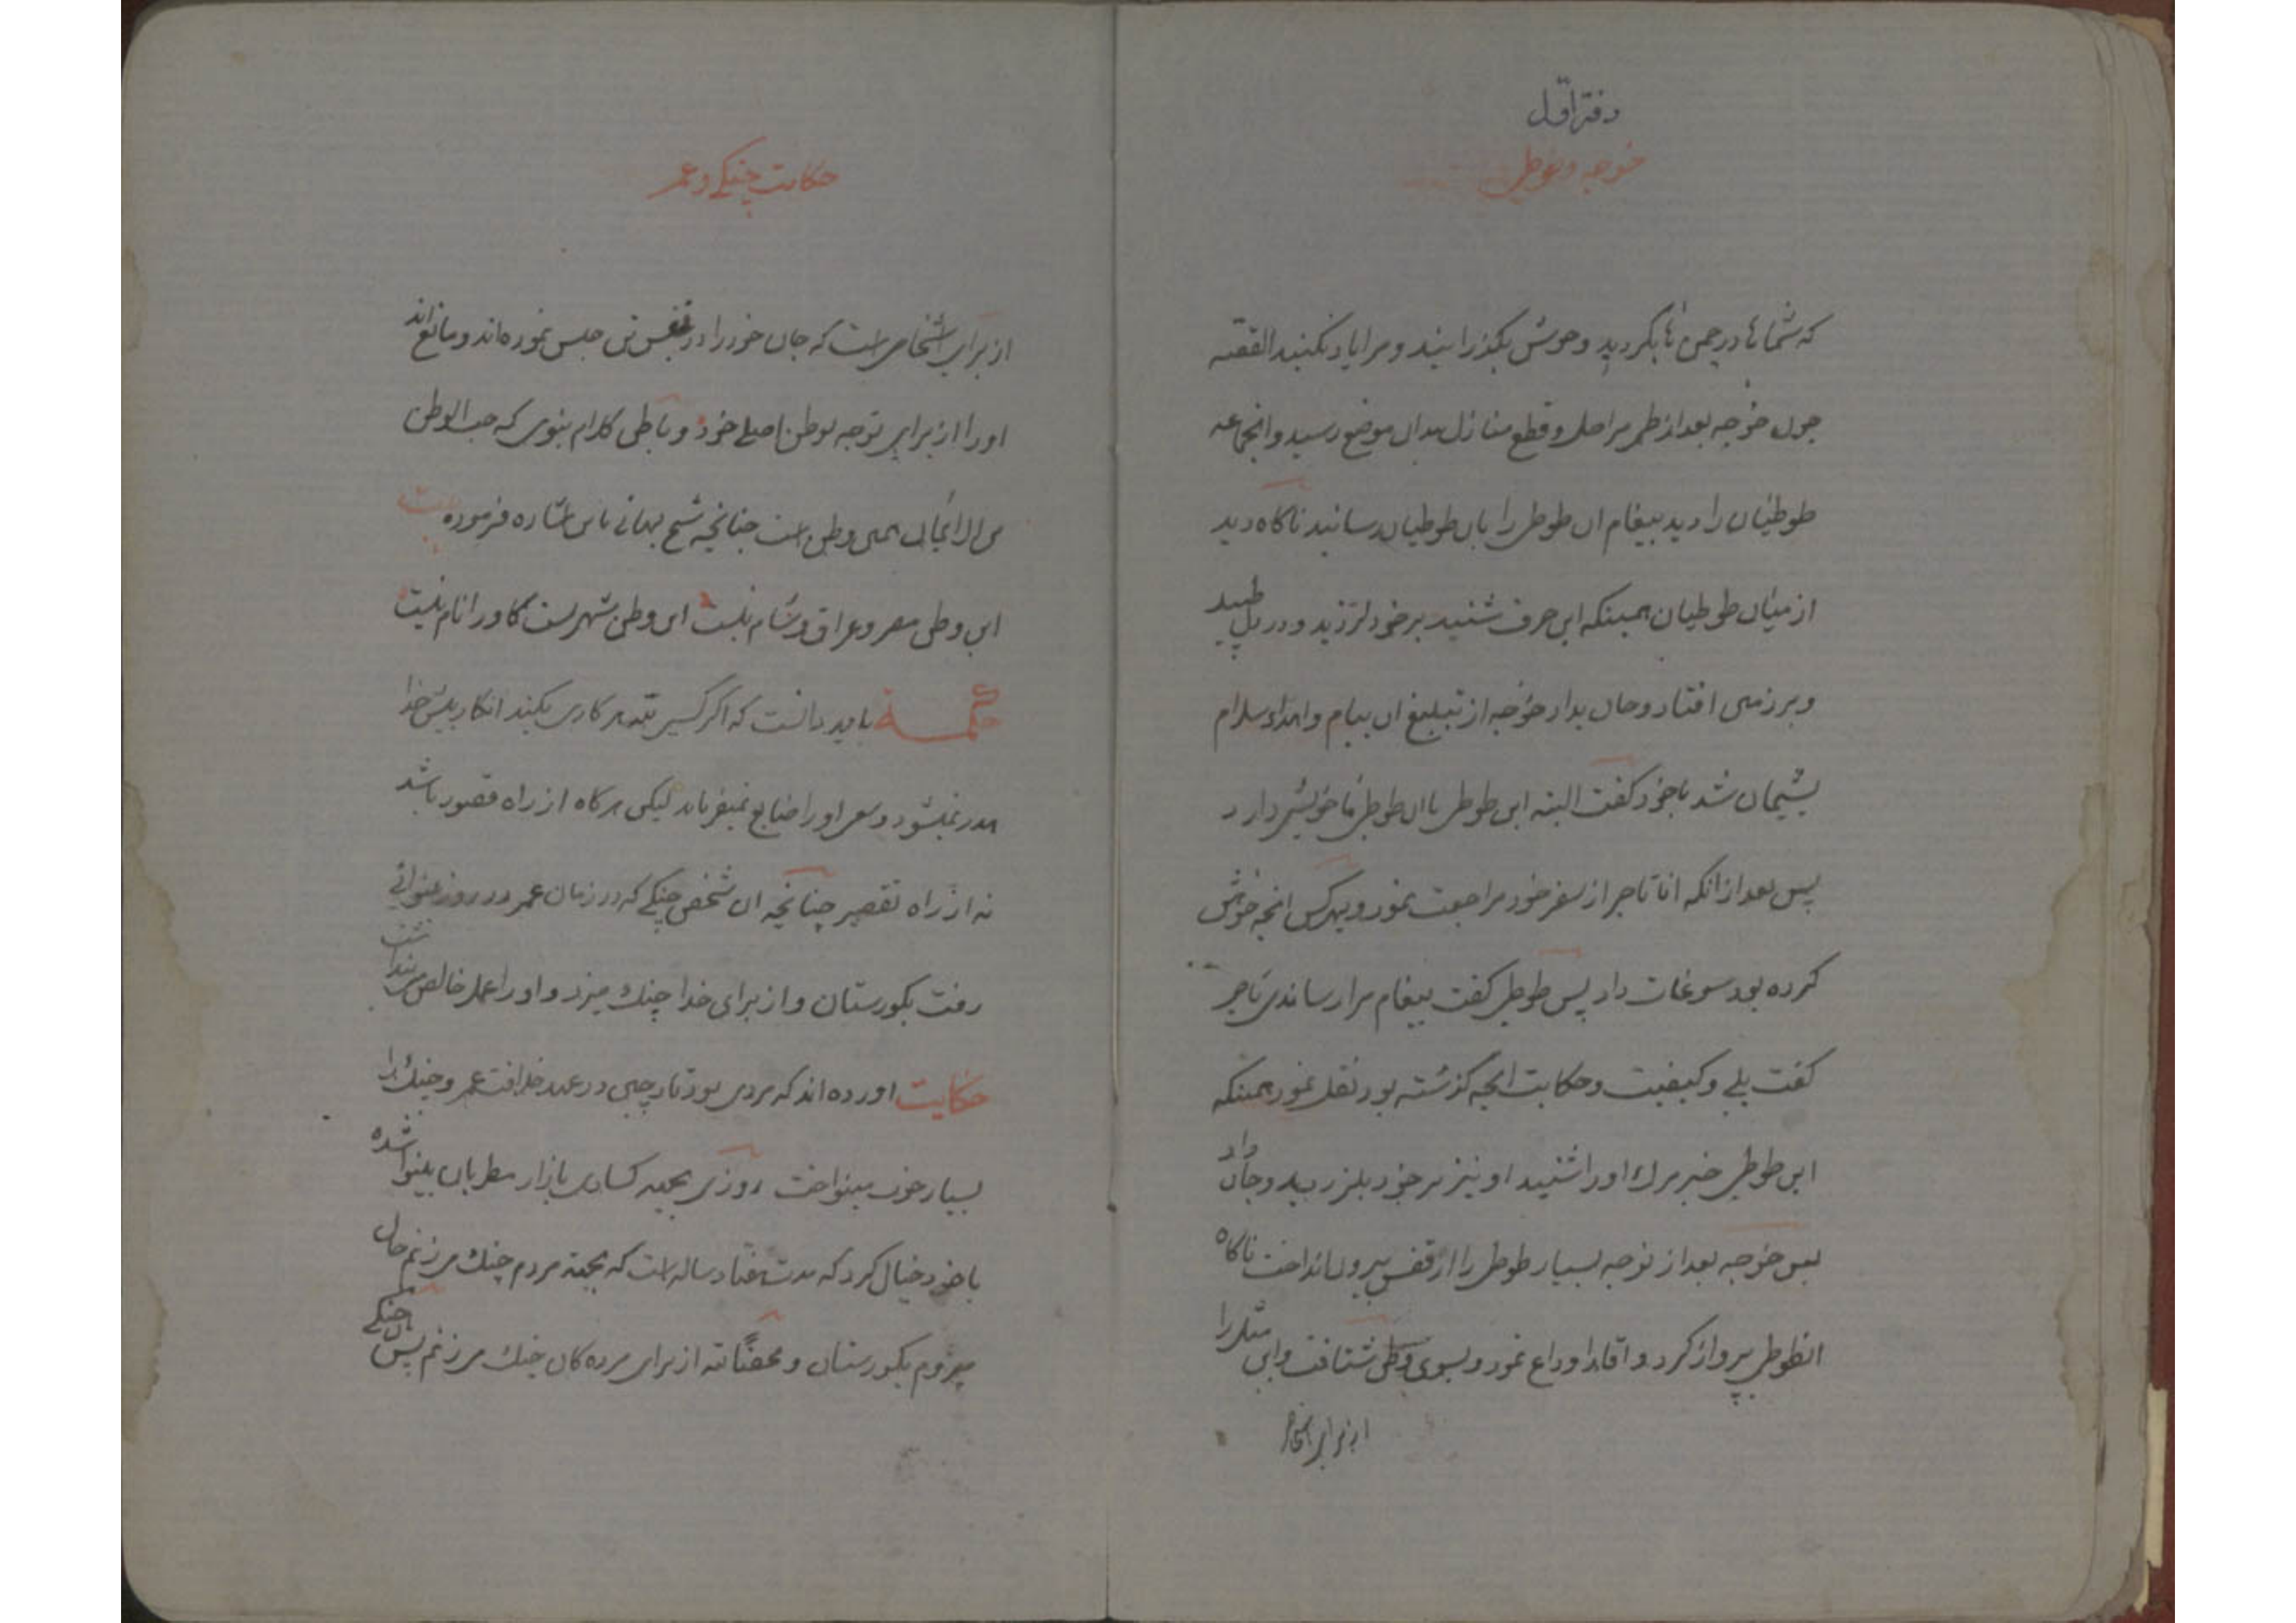 دفتر اول
خوجه و طوطی
که شماها در چمن‌ها بگردید و خوش بگذرانید و مرا یاد نکنید القصه
چون خوجه بعد از طی مراحل و قطع منازل بدان موضع رسید و انجماعه
طوطیان را دید پیغام ان طوطی را بان طوطیان رسانید ناکاه دید
از میان طوطیان همینکه این حرف شنید بر خود لرزید و در دل طپید
و بر زمین افتاد و جان بداد خوجه از تبلیغ ان پیام و اهداء سلام
پشیمان شد با خود کفت البته این طوطی با ان طوطی ما خویشی دارد
پس بعد از انکه تاجر از سفر خود مراجعت نمود و بهرکس انچه خواهش
کرده بود سوغات داد پس طوطی کفت پیغام مرا رساندی تاجر
کفت بلی و کیفیت و حکایت انچه کذشته بود نقل نمود همینکه
این طوطی خبر مرک او را شنید او نیز بر خود بلرزید و جان داد
پس خوجه بعد از نوحه بسیار طوطی را از قفس بیرون انداخت ناکاه
انطوطی پرواز کرد و اقا را وداع نمود و بسوی وطن شتافت و این مثل را
از برای اشخاص
حکایت چنکی و عمر
از برای اشخاصی است که جان خود را در قفس تن حبس نموده‌اند و مانع‌اند
او را از برای توجه بوطن اصلی خود و باطن کلام نبوی که حب الوطن
من الایمان همین وطن است چنانچه شیخ بهائی باین اشاره فرموده بیت
این وطن مصر و عراق و شام نیست این وطن شهریست کاو را نام نیست
حکمة باید دانست که اکر کسی کاری بکند انکار پیش خدا
هدر نمیشود و سعی او را ضایع نمیفرماید لیکن هرکاه از راه قصور باشد
نه از راه تقصیر چنانچه ان شخص چنکی که در زمان عمر در روز بینوائی
رفت بکورستان و از برای خدا چنک میزد و او را عمل خالص
حکایت اورده‌اند که مردی بود تارچی در عهد خلافت عمر و چنک را
بسیار خوب مینواخت روزی بجهة کسادی بازار مطربان بینوا شده
با خود خیال کرد که مدت هفتاد ساله است که بجهة مردم چنک میزنم حال
میروم بکورستان و مجانا از برای مرده‌کان چنک میزنم پس ان چنکی